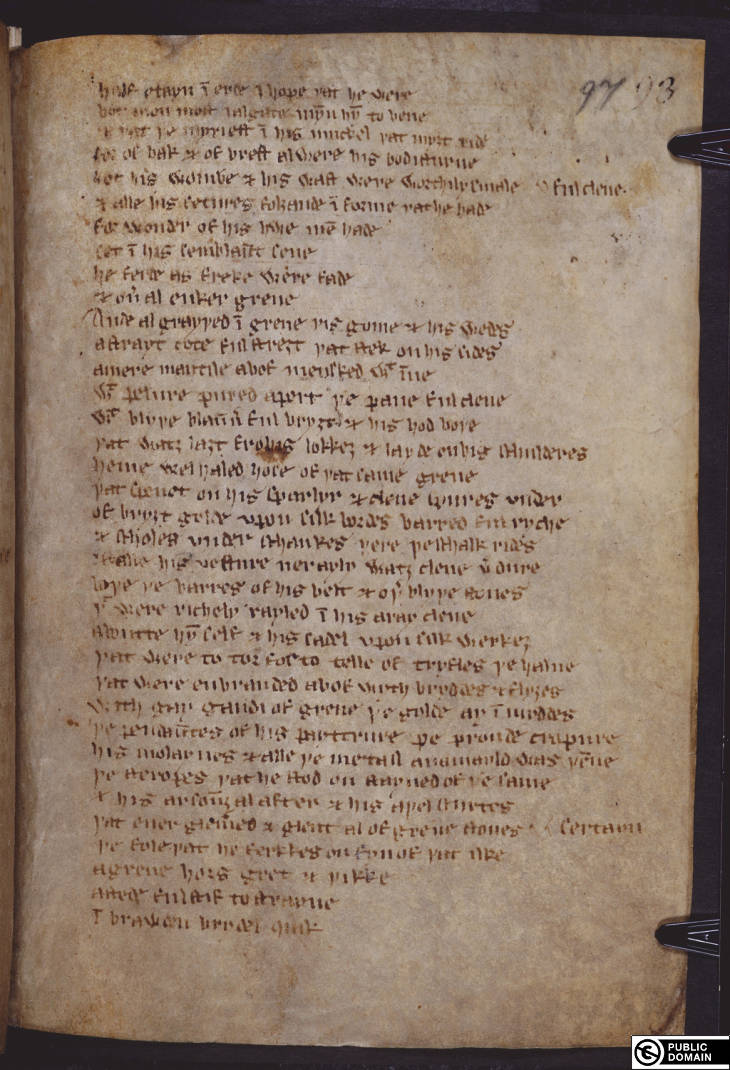 97 93
half etayn ī erde I hope þat he were
bot mon most I algate mynn hȳ to bene
& þat þe myriest ī his muckel þat myȝt ride
for of bak & of brest al were his bodi sturne
bot his wombe & his wast were worthily smale
ful clene
& alle his fetures folȝande ī forme þat he hade
for wonder of his hwe mē hade
set ī his semblaūt sene
he ferde as freke were fade
& ou̾al enker grene
Ande al grayþed ī grene þis gome & his wedes
a strayt cote ful streȝt þat stek on his sides
a mere mantile abof mensked wᵗ īne
wᵗ pelure pured apert þe pane ful clene
wᵗ blyþe blaūn̾ ful bryȝt & his hod boþe
þat watz laȝt fro his lokkez & layde on his schulderes
heme wel haled hose of þat same grene
þat spenet on his sparlyr & clene spures vnder
of bryȝt golde vpon silk bordes barred ful ryche
& scholes vnder schankes þere þe schalk rides
& alle his vesture uerayly watz clene v̾dure
boþe þe barres of his belt & oþ̾ blyþe stones
þᵗ were richely rayled ī his aray clene
aboutte hȳ self & his sadel vpon silk werkez
þat were to tor for to telle of tryfles þe halue
þat were enbrauded abof wyth bryddes & flyȝes
with gay gaudi of grene þe golde ay ī myddes
þe pendaūtes of his payttrure þe proude cropure
his molaynes & alle þe metail anamayld was þēne
þe steropes þat he stod on stayned of þe same
& his arsoūz al after & his aþel sturtes
þat euer glem̾ed & glent al of grene stones
sertayn
þe fole þat he ferkkes on fyn of þat ilke
a grene hors gret & þikke
a stede ful stif to strayne
ī brawden brydel quik
PUBLIC
DOMAIN